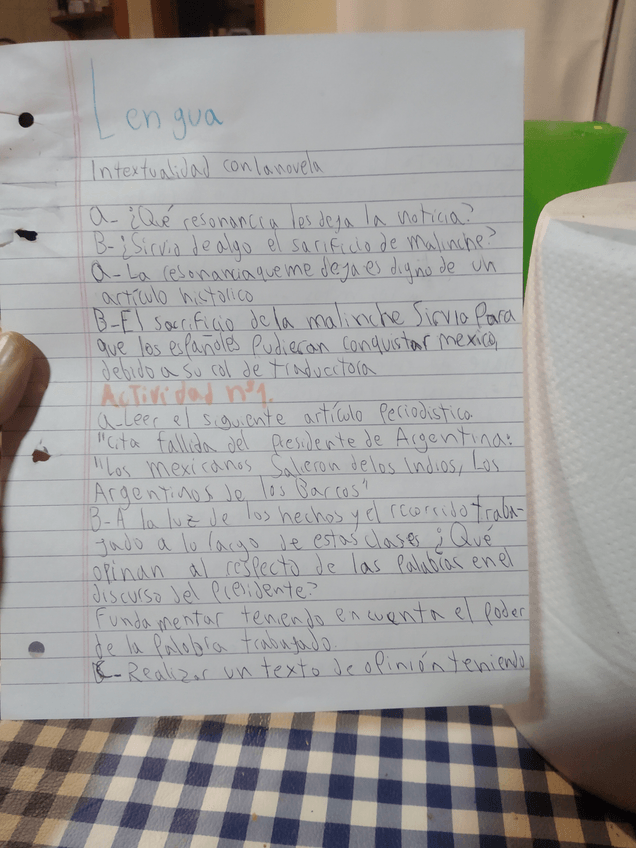 Lengua
Intextualidad con la novela
a- ¿Qué resonancia les deja la noticia?
B- ¿Sirvio de algo el sacrificio de malinche?
a- La resonancia que me deja es digno de un
artículo historico
B- El sacrificio de la malinche Sirvio Para
que los españoles Pudieran conquistar mexico,
debido a su rol de traductora
Actividad nº1.
a- Leer el siguiente artículo Periodistico
"cita fallida del Presidente de Argentina:
"Los mexicanos Salieron de los Indios, Los
Argentinos de los Barcos"
B- A la luz de los hechos y el recorrido traba-
jado a lo largo de estas clases ¿Qué
opinan al respecto de las Palabras en el
discurso del Presidente?
Fundamentar teniendo en cuenta el Poder
de la Palabra trabajado.
C- Realizar un texto de opinión teniendo